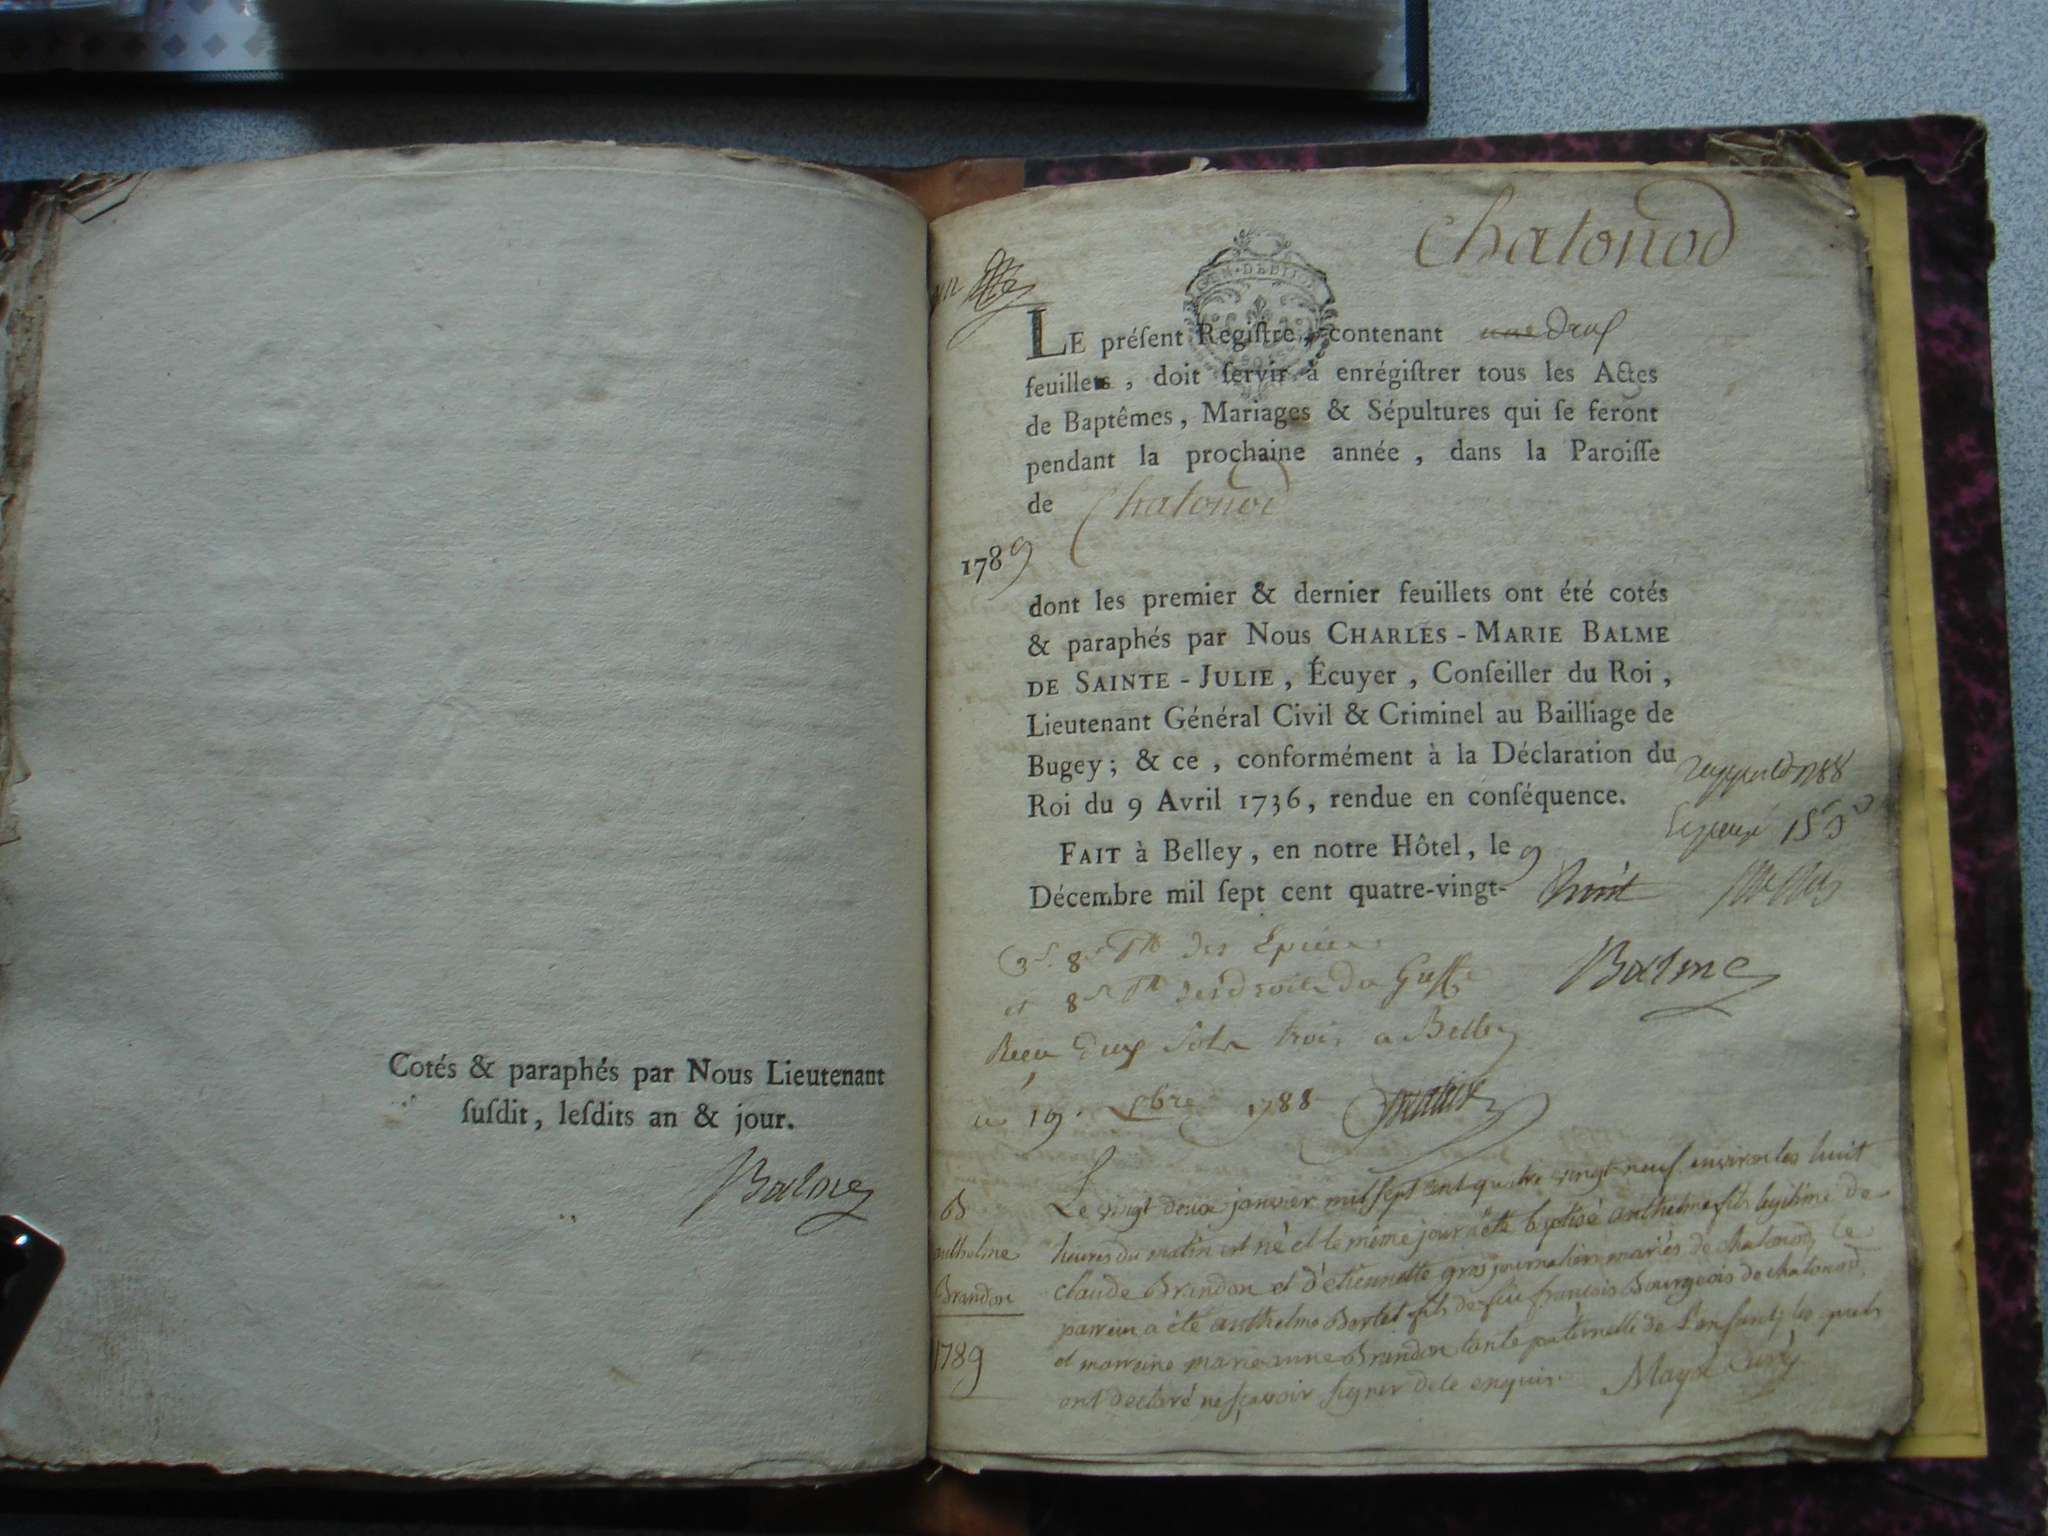 Cotés & paraphés par Nous Lieutenant
ſuſdit, leſdits an & jour.
Balme
chatonod
GEN. DE DIJON
LE préſent Regiſtre, contenant une deux
feuillets, doit ſervir à enrégiſtrer tous les Actes
de Baptêmes, Mariages & Sépultures qui ſe feront
pendant la prochaine année, dans la Paroiſſe
de Chatonod
1789
dont les premier & dernier feuillets ont été cotés
& paraphés par Nous CHARLES-MARIE BALME
DE SAINTE-JULIE, Écuyer, Conſeiller du Roi,
Lieutenant Général Civil & Criminel au Bailliage de
Bugey; & ce, conformément à la Déclaration du
Roi du 9 Avril 1736, rendue en conſéquence.
FAIT à Belley, en notre Hôtel, le 9
Décembre mil ſept cent quatre-vingt- huit
Balme
3 s. 8 d. des Epices
et 8 d. des droits du Greffe
Reçu deux sols trois a Belley
19 1788
B
anthelme
Brandon
1789
Le vingt deux janvier mil sept cent quatre vingt neuf environ les huit
heures du matin est né et le même jour a été baptisé anthelme fils legitime de
claude Brandon et d'etiennette gros journaliers mariés de chatonod, le
parrein a été anthelme Bertet fils de feu françois Bourgeois de chatonod,
et marreine marie anne Brandon tante paternelle de l'enfant, les quels
ont declaré ne sçavoir signer de ce enquis. Mayx Curé